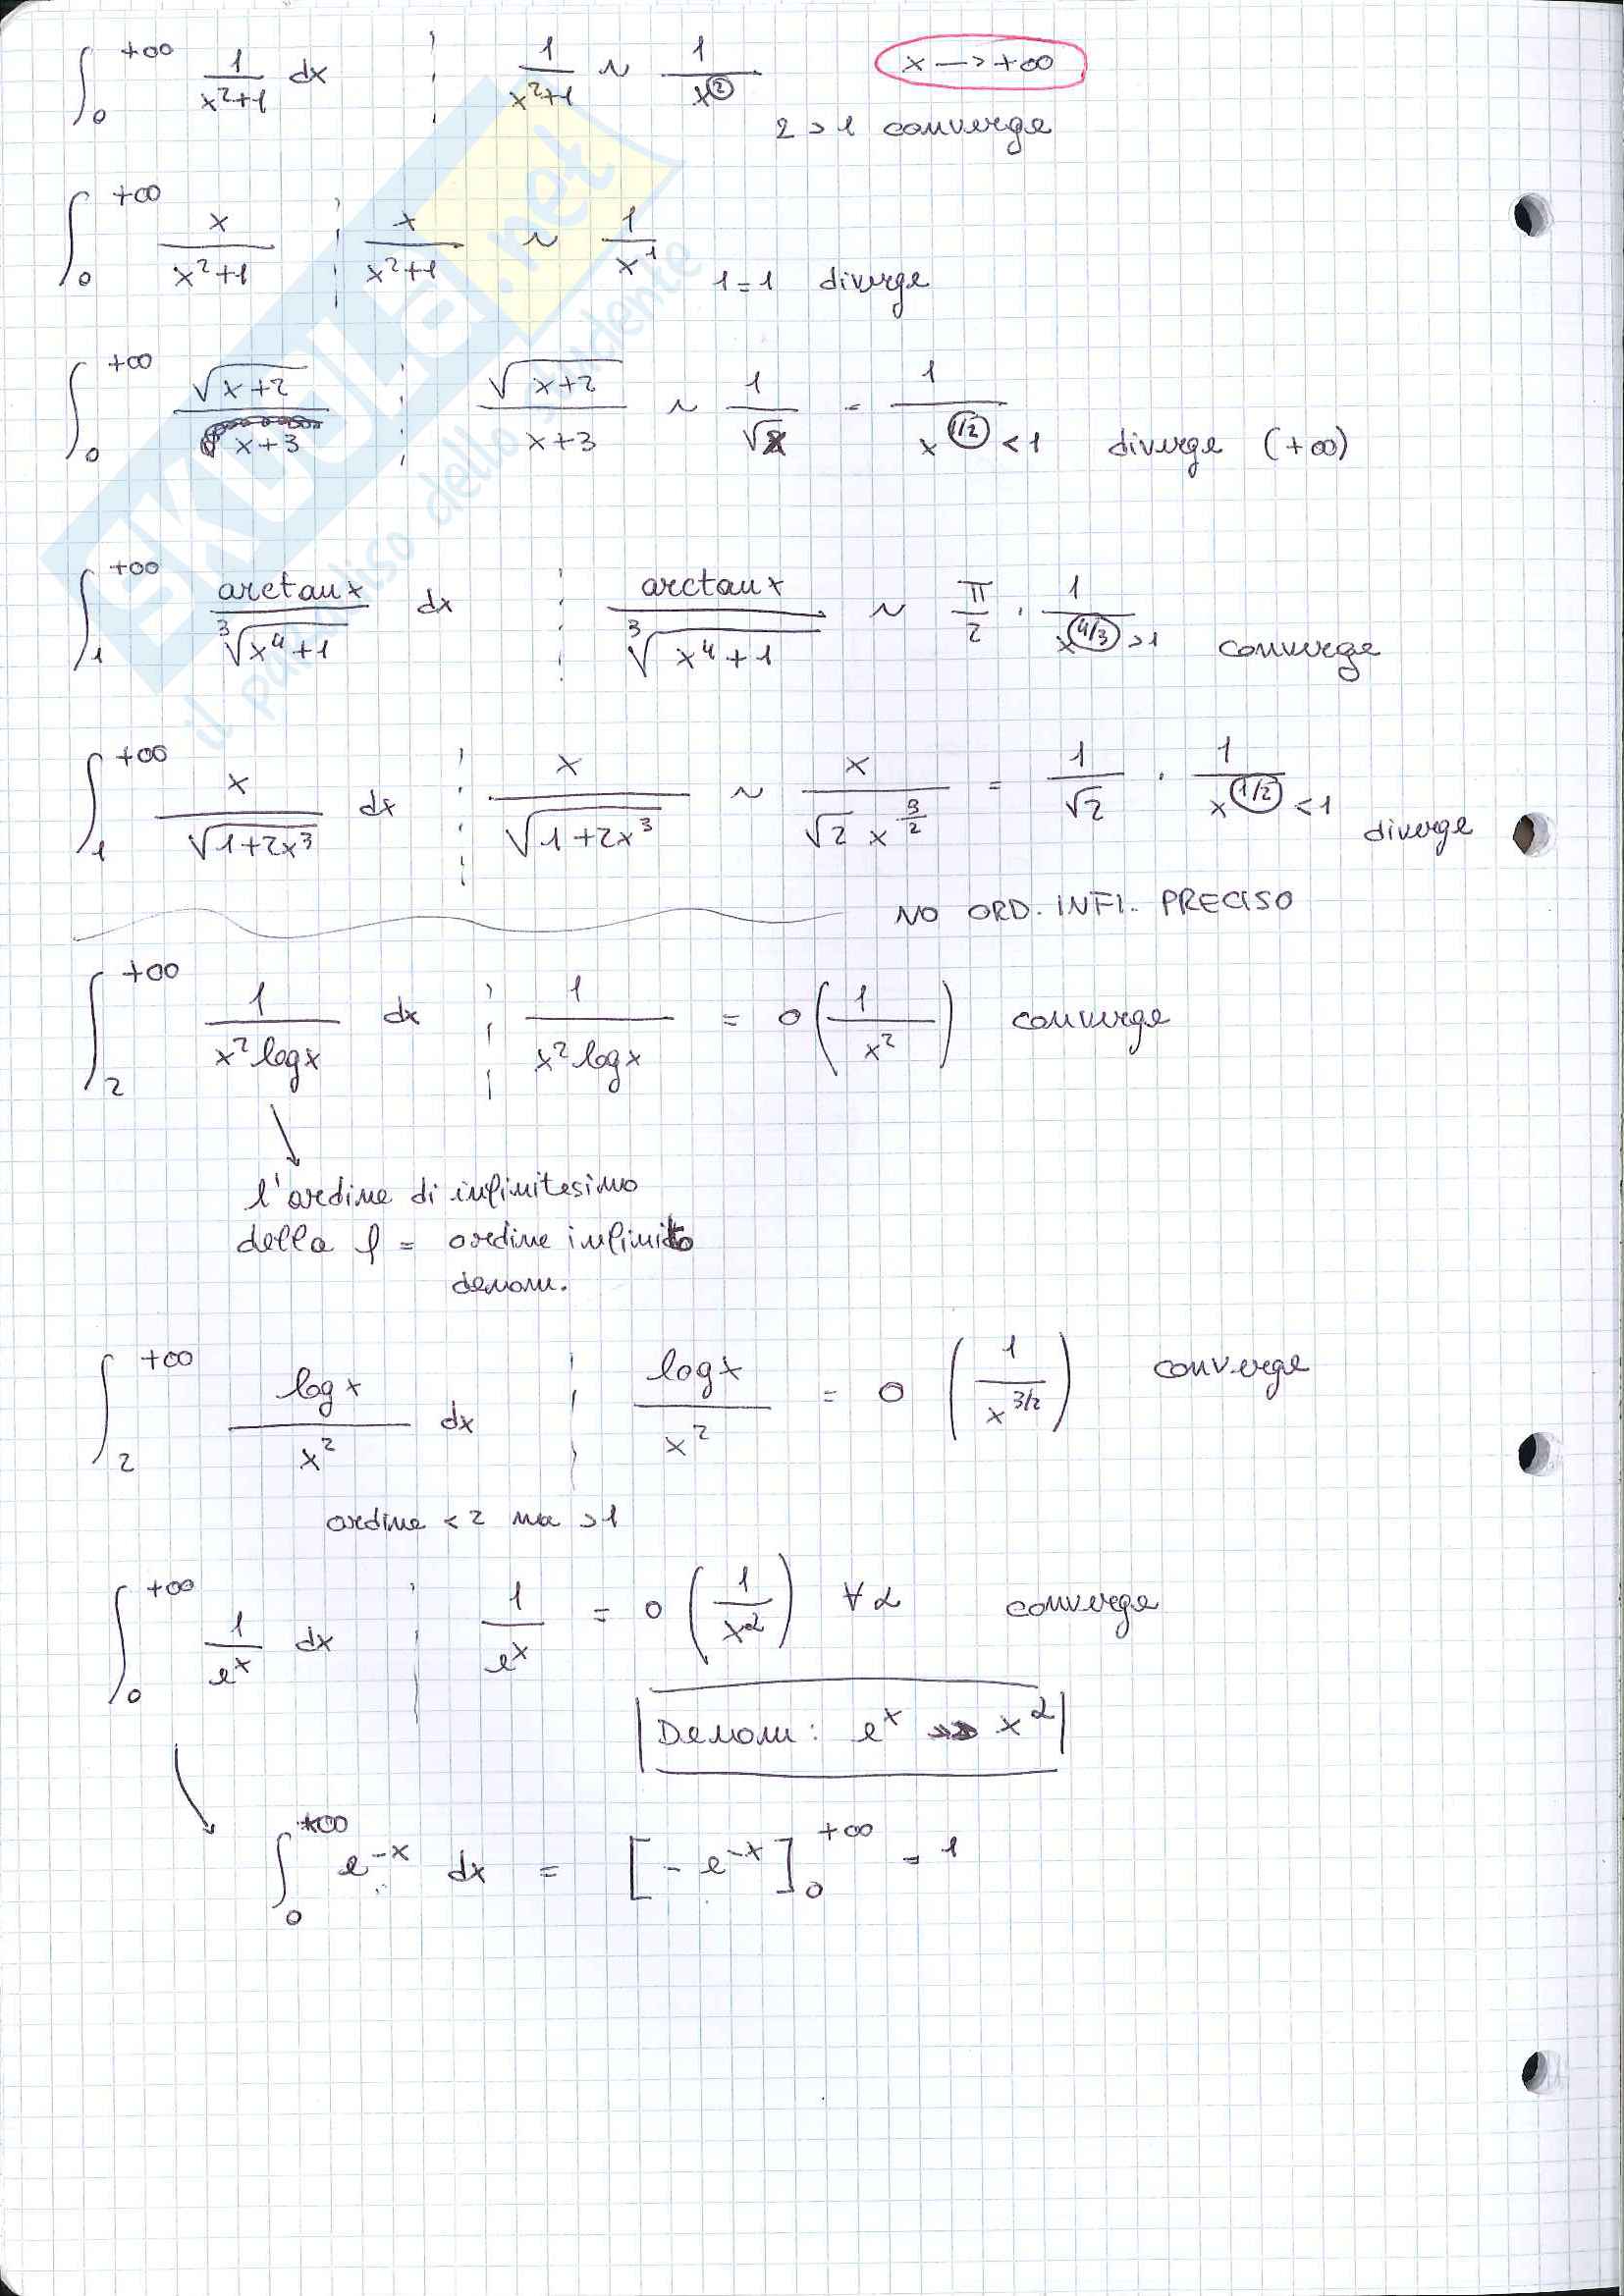 ∫₀^{+∞} 1/(x²+1) dx ¦ 1/(x²+1) ~ 1/x² x → +∞
2 > 1 converge
∫₀^{+∞} x/(x²+1) ¦ x/(x²+1) ~ 1/x¹ 1 = 1 diverge
∫₀^{+∞} √(x+2)/(x+3) ¦ √(x+2)/(x+3) ~ 1/√x = 1/x^{1/2} < 1 diverge (+∞)
∫₁^{+∞} arctan x/∛(x⁴+1) dx ¦ arctan x/∛(x⁴+1) ~ π/2 · 1/x^{4/3} > 1 converge
∫₁^{+∞} x/√(1+2x³) dx ¦ x/√(1+2x³) ~ x/(√2 x^{3/2}) = 1/√2 · 1/x^{1/2} < 1 diverge
NO ORD. INFI. PRECISO
∫₂^{+∞} 1/(x² log x) dx ¦ 1/(x² log x) = o(1/x²) converge
l'ordine di infinitesimo
della f = ordine infinito
denom.
∫₂^{+∞} log x/x² dx ¦ log x/x² = o(1/x^{3/2}) converge
ordine < 2 ma > 1
∫₀^{+∞} 1/e^x dx ¦ 1/e^x = o(1/x^α) ∀α converge
Denom: e^x >> x^α
∫₀^{+∞} e^{-x} dx = [-e^{-x}]₀^{+∞} = 1
SKUOLA.net
il paradiso dello studente